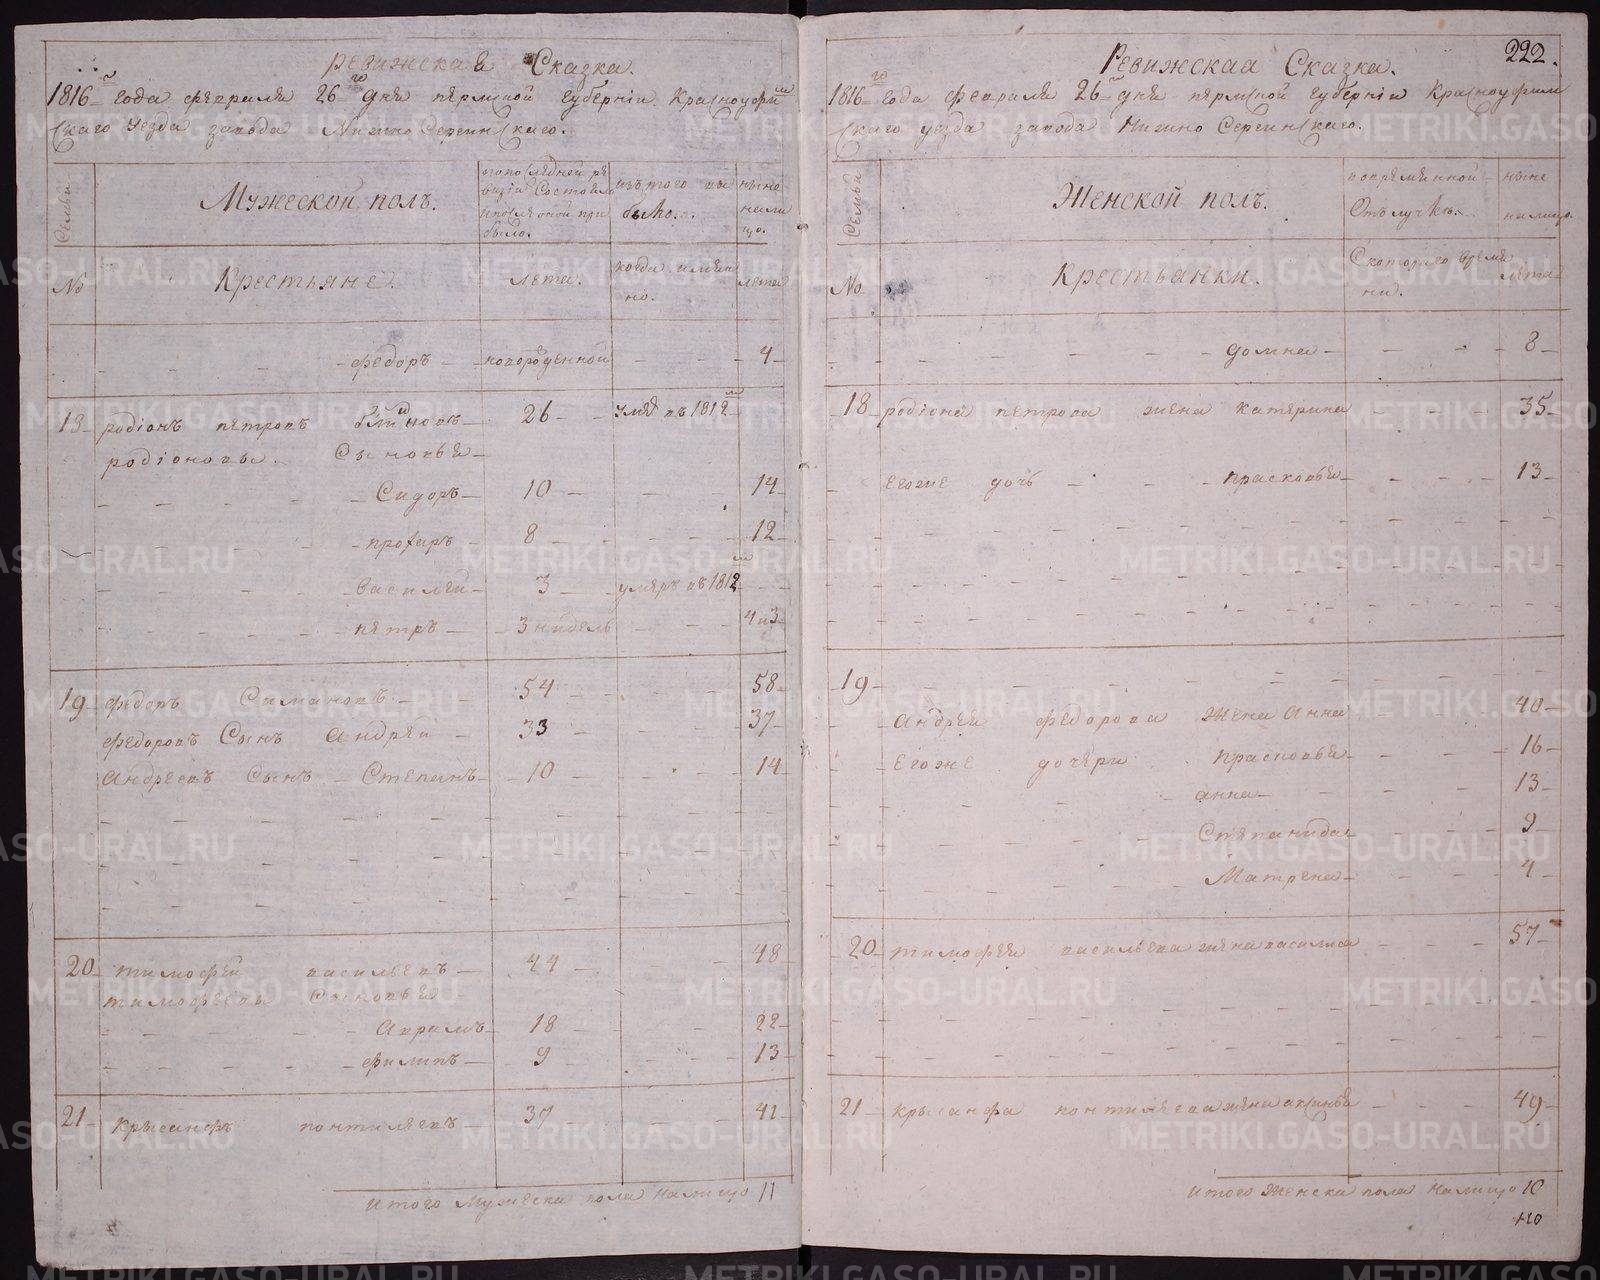 Ревижская Сказка.
1816го года февраля 26го дня пермской губернiи Красноуфим
скаго уезда завода Нижно Сергинскаго.
Семьи
Мужеской полъ.
по последней ре
визiи состояло
и после оной при
было.
изъ того вы
было.
ныне
нали
цо.
№
Крестьяне.
лета.
когда имян
но.
лета
федоръ новорожденной 4
18 родiонъ петровъ 26 умре въ 1812м
родiоновы Сыновья
Сидоръ 10 14
профиръ 8 12
василей 3 умеръ въ 1812м
петръ 3 нидель 4 и 3
19 федоръ Симановъ 54 58
федоровъ Сынъ андрей 33 37
андреевъ Сынъ Степанъ 10 14
20 тимофей васильевъ 44 48
тимофеевы Сыновья
аврамъ 18 22
филипъ 9 13
21 Крысанфъ понтилеевъ 37 41
итого Мужеска пола налицо 11
222.
Ревижская Сказка.
1816го года февраля 26го дня пермской губернiи Красноуфим
скаго уезда завода Нижно Сергинскаго.
Семьи
Женской полъ.
во временной
Отлучке.
ныне
налицо.
№
Крестьянки.
Скоторого время
ни.
лета
домна 8
18 родiона петрова жена катерина 35
Егоже дочь прасковья 13
19
андрея федорова жена анна 40
Егоже дочери прасковья 16
анна 13
Степанида 9
Матрена 4
20 тимофея васильева жена василиса 57
21 крысанфа понтилеева жена аксинья 49
итого женска пола налицо 10
METRIKI.GASO-URAL.RU